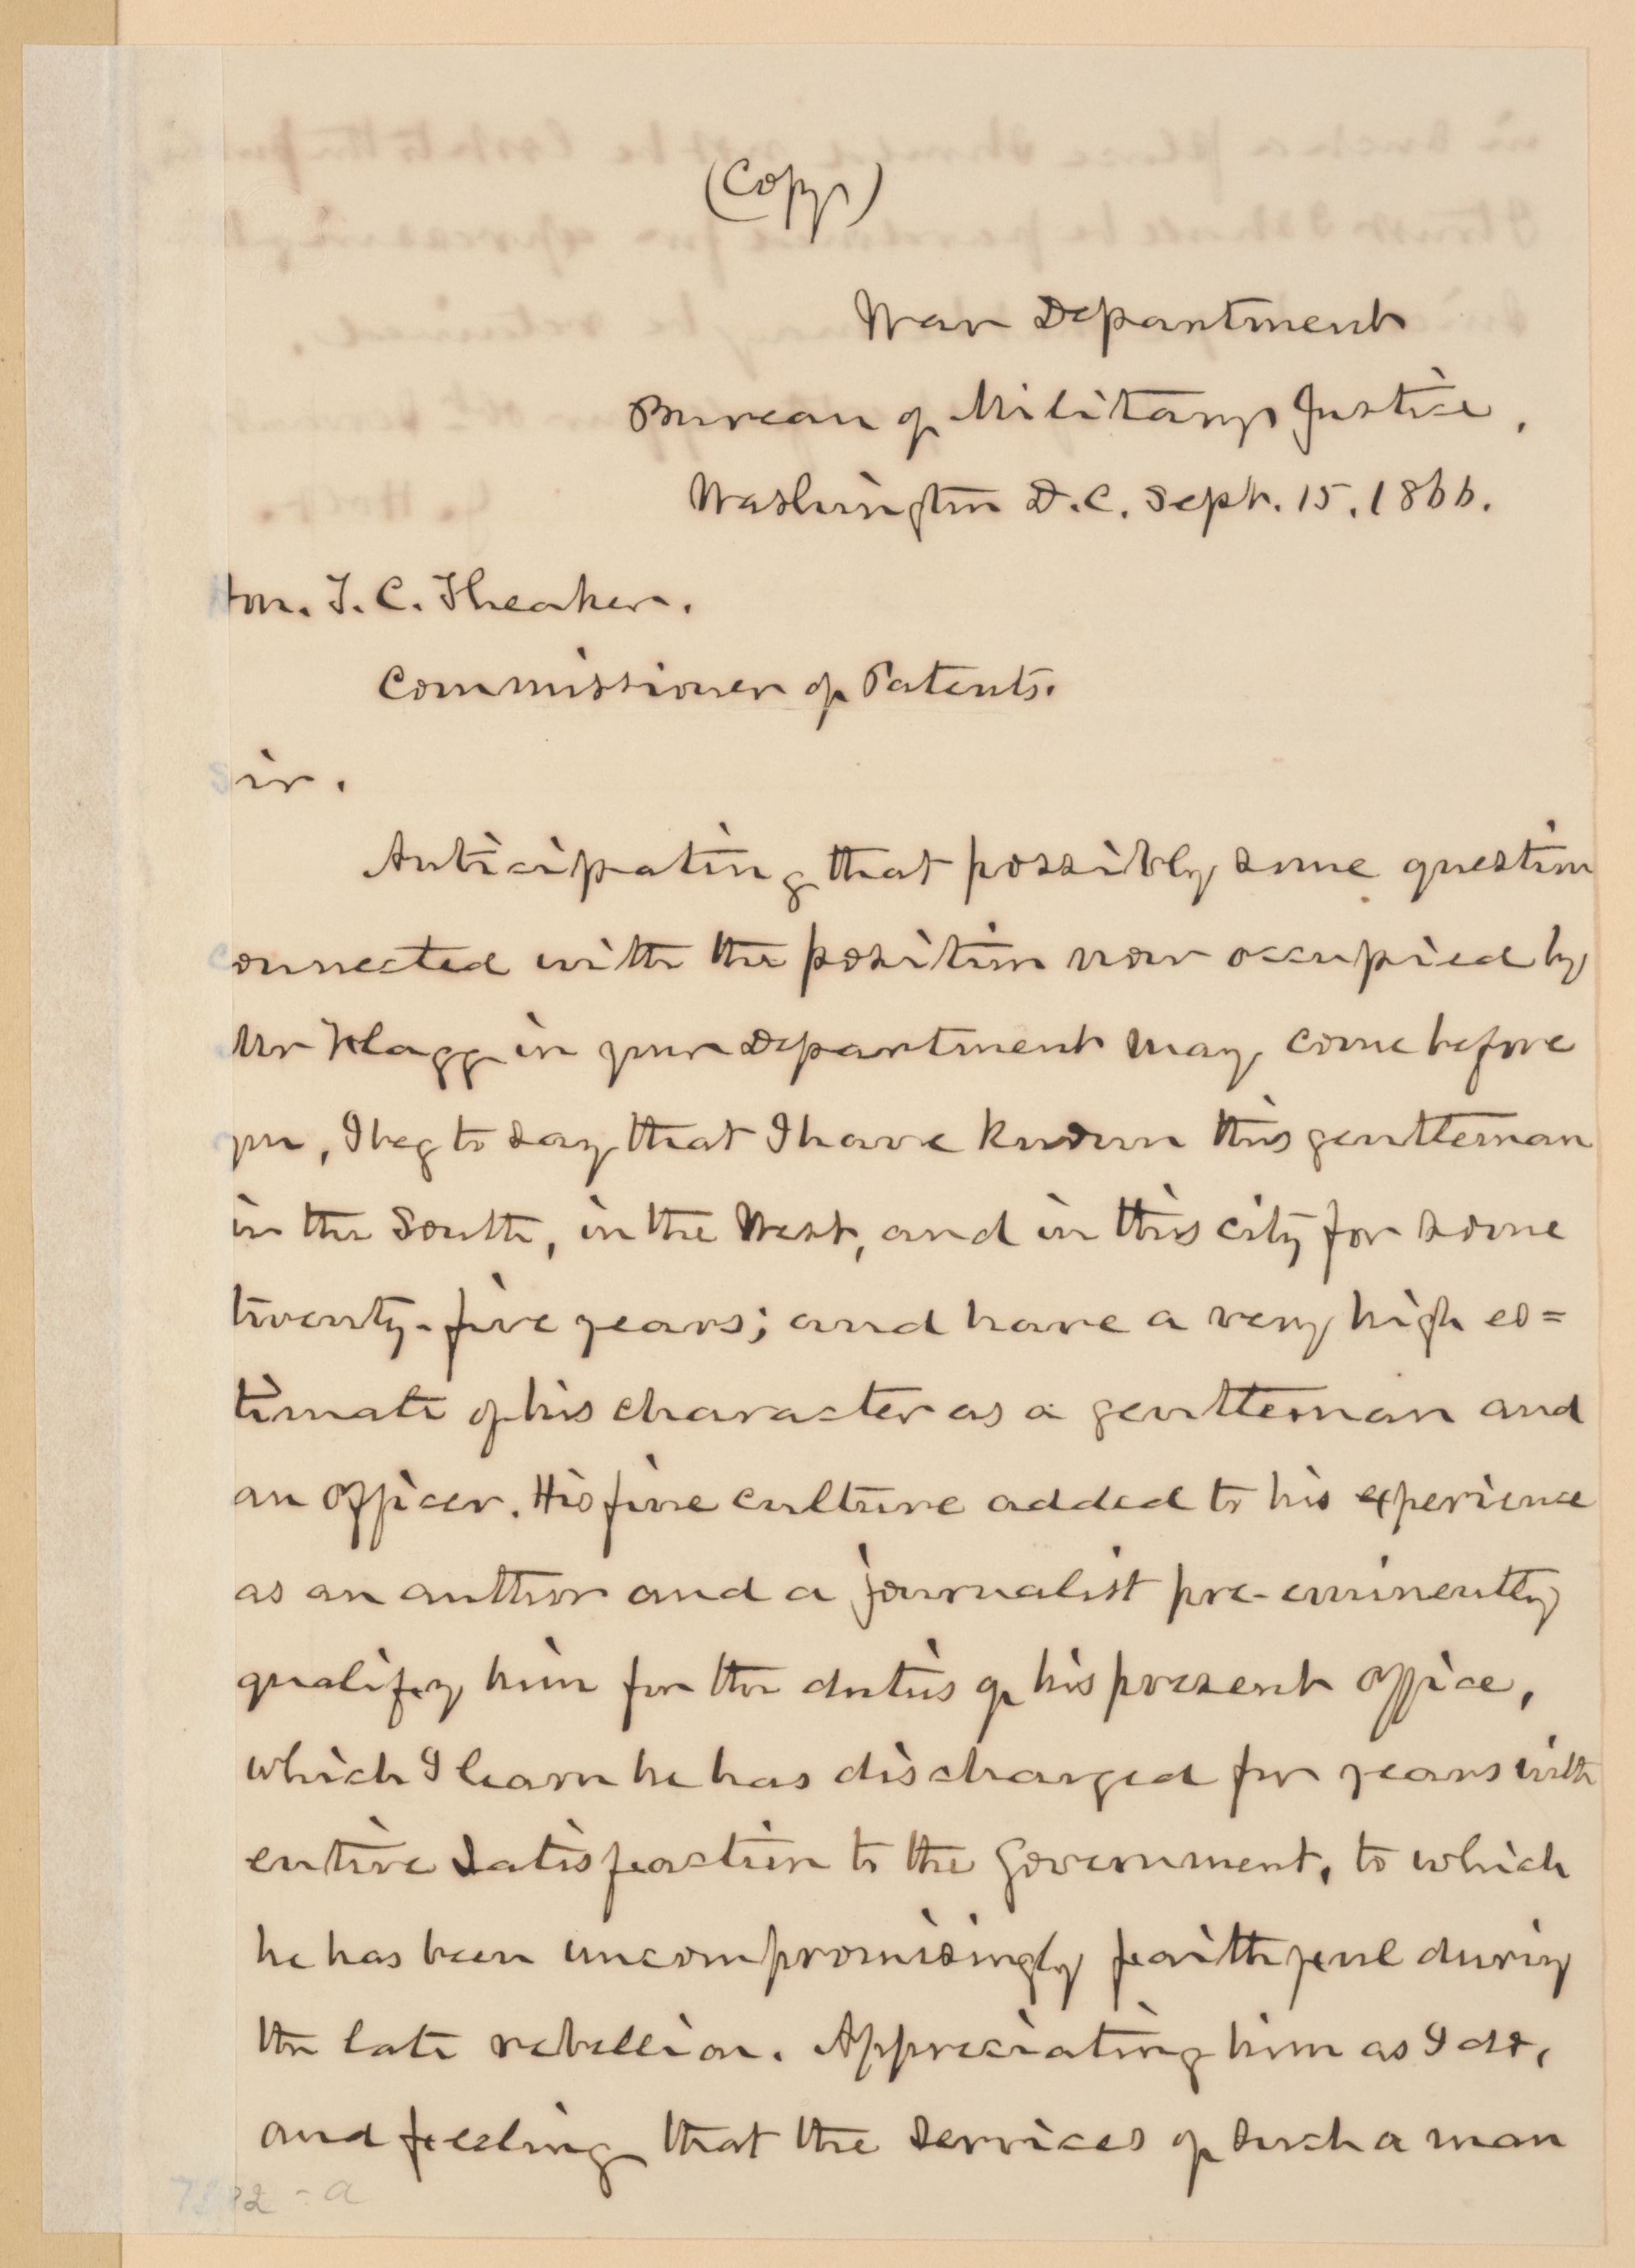 (Copy)
War Department
Bureau of Military Justice,
Washington D.C. Sept. 15, 1866.
Hon. T. C. Theaker.
Commissioner of Patents.
Sir.
Anticipating that possibly some question
connected with the position now occupied by
Mr Flagg in your Department may come before
you, I beg to say that I have known this gentleman
in the South, in the West, and in this city for some
twenty-five years; and have a very high es=
timate of his character as a gentleman and
an officer. His fine culture added to his experience
as an author and a journalist pre-eminently
qualify him for the duties of his present office,
which I learn he has discharged for years with
entire satisfaction to the Government, to which
he has been uncompromisingly faithful during
the late rebellion. Appreciating him as I do,
and feeling that the services of such a man